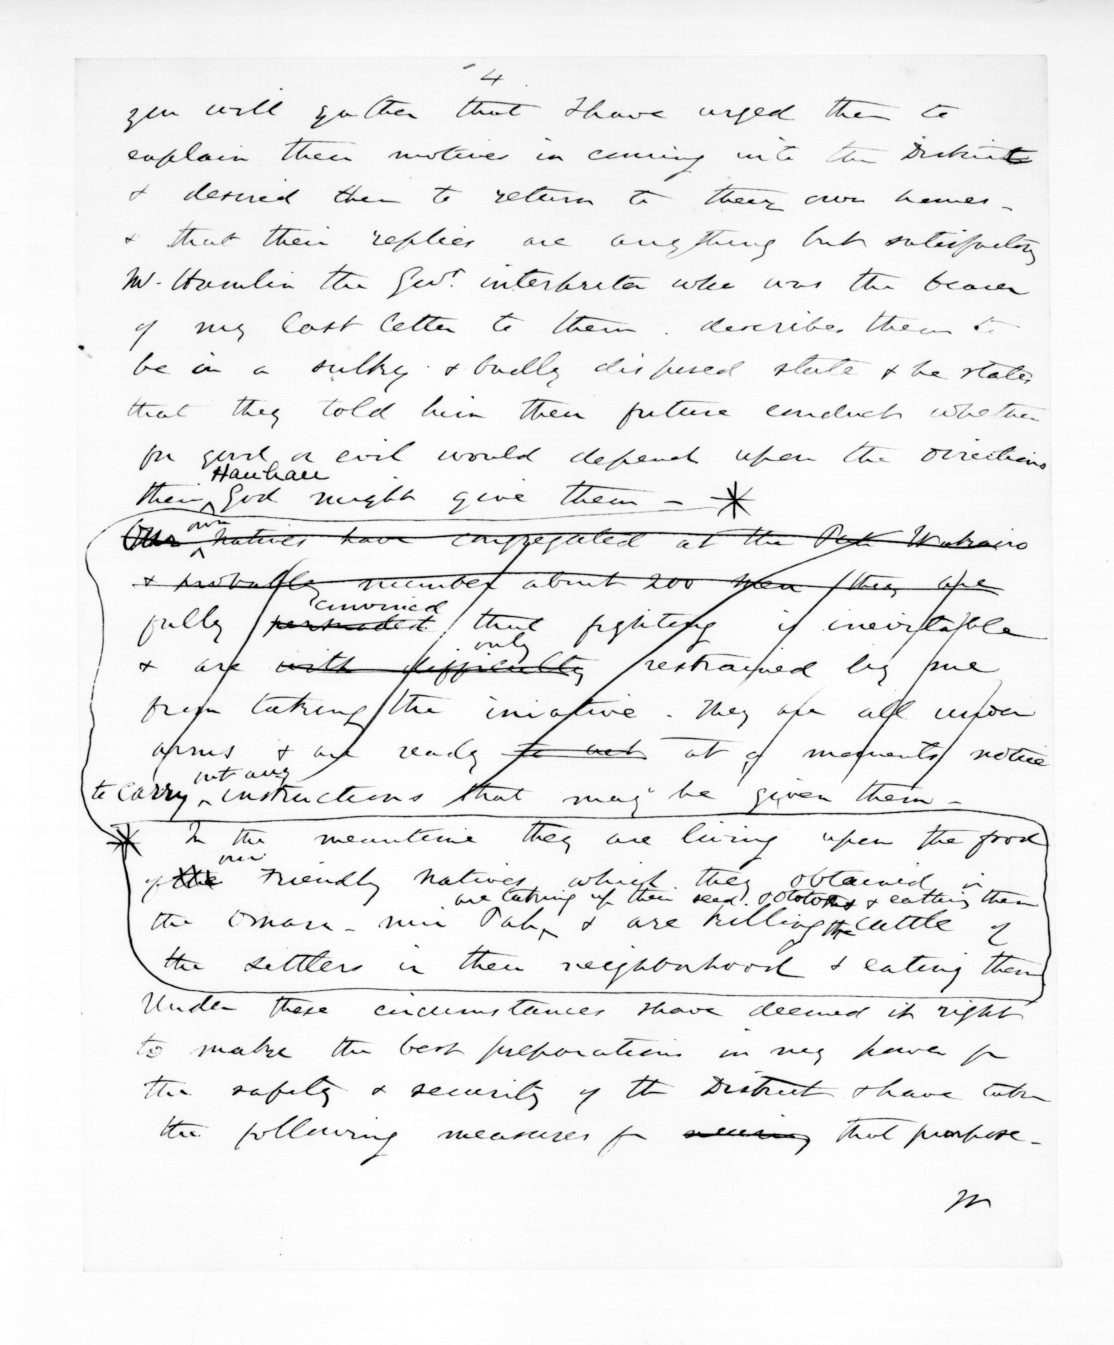 4
you will gather that I have urged them to
explain their motives in coming into the District
& desired them to return to their own homes -
& that their replies are anything but satisfactory
Mr. Hamlin the Govt. interpreter who was the bearer
of my last letter to them. describes them to
be in a sulky & badly disposed state & he states
that they told him their future conduct whether
for good or evil would depend upon the directions
Hauhau
their God might give them -
own
Our natives have congregated at the Pah
& probably number about 200 men they are
convinced
fully persuaded that fighting is inevitable
only
& are with difficulty restrained by me
from taking the iniative. They are all under
arms & are ready to act at a moments notice
out any
to carry instructions that may be given them -
In the meantime they are living upon the food
our
of the Friendly Natives which they obtained in
are taking up their seed potatoes & eating them
the Omara-nui Pah, & are killing the cattle of
the settlers in their neighborhood & eating them
Under these circumstances I have deemed it right
to make the best preparations in my power for
the safety & security of the District & have taken
the following measures for that purpose -